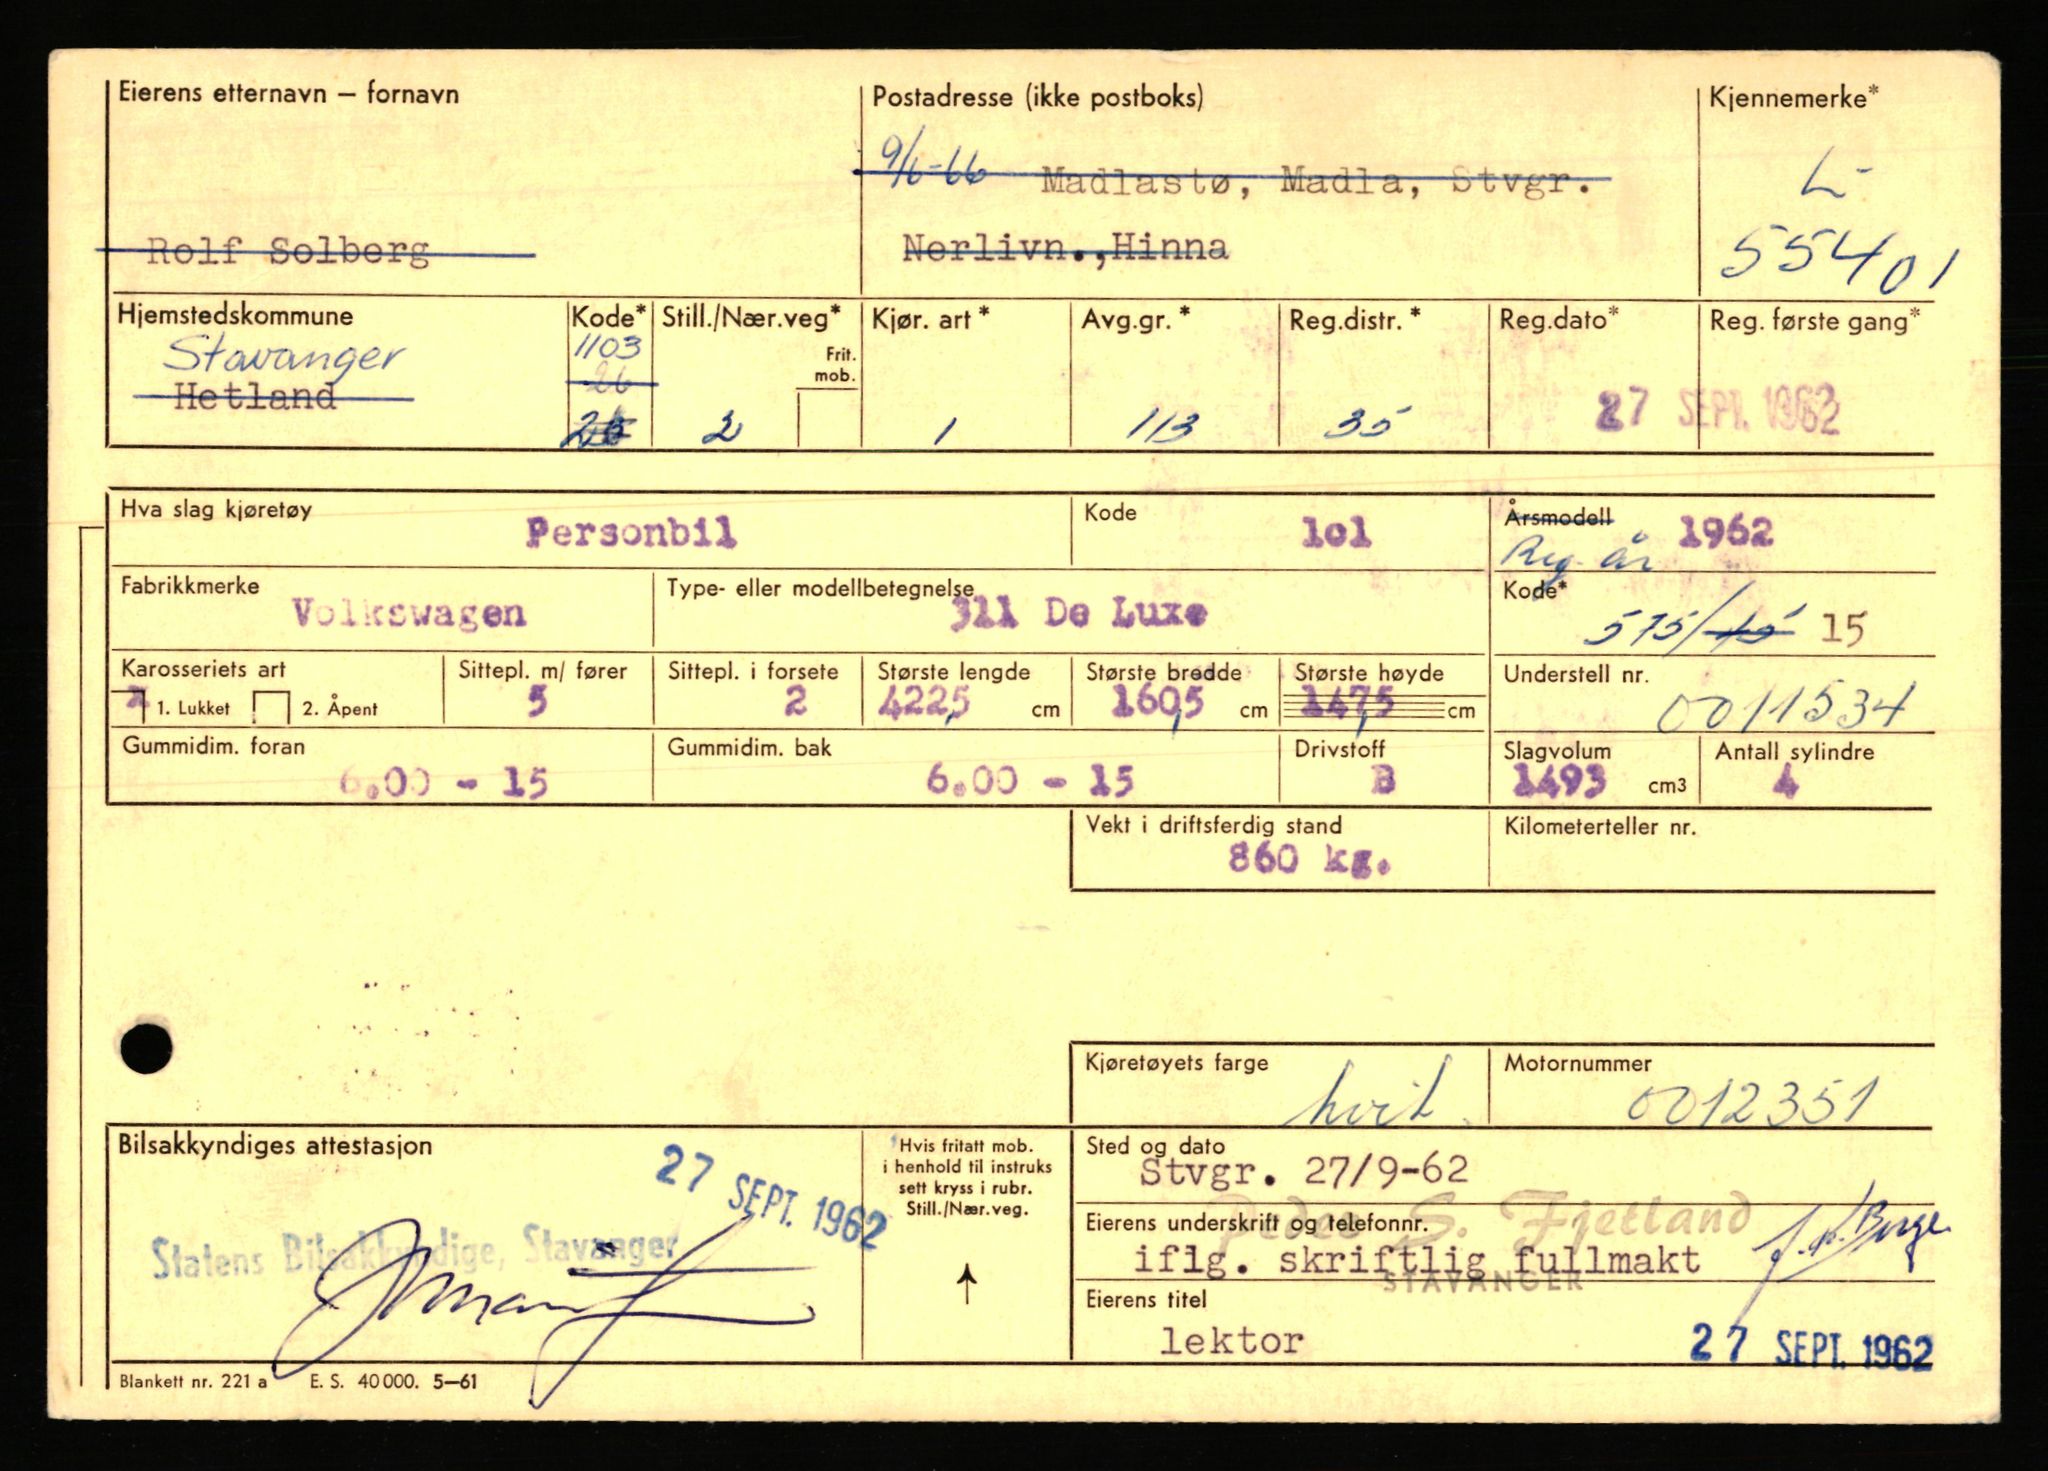 Eierens etternavn – fornavn
Rolf Solberg
Postadresse (ikke postboks)
9/6-66 Madlastø, Madla, Stvgr.
Nerlivn.,Hinna
Kjennemerke*
L-
55401
Hjemstedskommune
Stavanger
Hetland
Kode*
1103
26
Still./Nær.veg*
Frit.
mob.
2
Kjør. art *
1
Avg.gr. *
113
Reg.distr. *
35
Reg.dato*
Reg. første gang*
27 SEPT. 1962
Hva slag kjøretøy
Personbil
Kode
101
Årsmodell 1962
Reg. år
Fabrikkmerke
Volkswagen
Type- eller modellbetegnelse
311 De Luxe
Kode*
575/15 15
Karosseriets art
x 1. Lukket 2. Åpent
Sittepl. m/ fører
5
Sittepl. i forsete
2
Største lengde
422,5 cm
Største bredde
160,5 cm
Største høyde
147,5 cm
Understell nr.
0011534
Gummidim. foran
6.00 - 15
Gummidim. bak
6.00 - 15
Drivstoff
B
Slagvolum
1493 cm3
Antall sylindre
4
Vekt i driftsferdig stand
860 kg.
Kilometerteller nr.
Kjøretøyets farge
hvit
Motornummer
0012351
Bilsakkyndiges attestasjon
27 SEPT. 1962
Statens Bilsakkyndige, Stavanger
Hvis fritatt mob.
i henhold til instruks
sett kryss i rubr.
Still./Nær.veg.
Sted og dato
Stvgr. 27/9-62
Peder S. Fjetland
Eierens underskrift og telefonnr.
iflg. skriftlig fullmakt
STAVANGER
Eierens titel
lektor
27 SEPT. 1962
Blankett nr. 221 a E. S. 40 000. 5–61